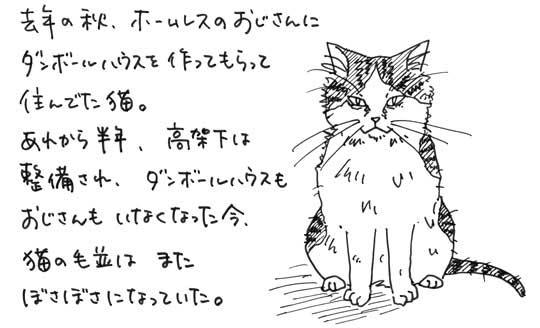 去年の秋、ホームレスのおじさんに
ダンボールハウスを作ってもらって
住んでた猫。
あれから半年、高架下は
整備され、ダンボールハウスも
おじさんもいなくなった今、
猫の毛並は また
ぼさぼさになっていた。